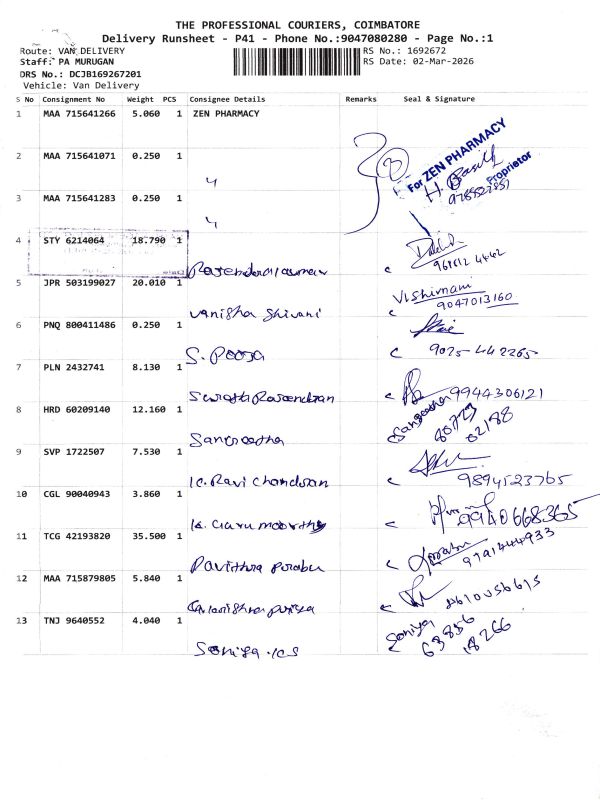 THE PROFESSIONAL COURIERS, COIMBATORE
Delivery Runsheet - P41 - Phone No.:9047080280 - Page No.:1
Route: VAN DELIVERY
RS No.: 1692672
Staff: PA MURUGAN
RS Date: 02-Mar-2026
DRS No.: DCJB169267201
Vehicle: Van Delivery
S No Consignment No Weight PCS Consignee Details Remarks Seal & Signature
1 MAA 715641266 5.060 1 ZEN PHARMACY
For ZEN PHARMACY
Proprietor
2 MAA 715641071 0.250 1
3 MAA 715641283 0.250 1
4 STY 6214064 18.790 1
5 JPR 503199027 20.010 1
Vanisha Shivani
Vishivnani
9047013160
6 PNQ 800411486 0.250 1
S. Pooja
9025 442265
7 PLN 2432741 8.130 1
9944306121
8 HRD 60209140 12.160 1
Sangeetha
80773
02188
9 SVP 1722507 7.530 1
K. Ravi Chandran
9894523765
10 CGL 90040943 3.860 1
9940668365
11 TCG 42193820 35.500 1
Pavithra Prabu
9791444933
12 MAA 715879805 5.840 1
13 TNJ 9640552 4.040 1
Soniya
63856
18266
Soniya .KS